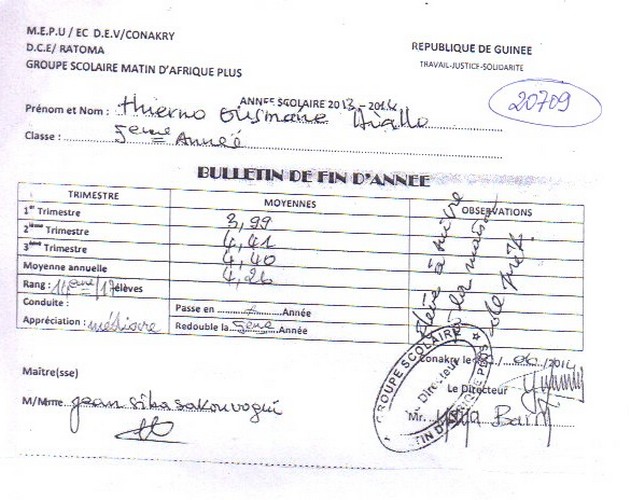 M.E.P.U / EC D.E.V/CONAKRY
D.C.E/ RATOMA
GROUPE SCOLAIRE MATIN D'AFRIQUE PLUS
REPUBLIQUE DE GUINEE
TRAVAIL-JUSTICE-SOLIDARITE
20709
ANNEE SCOLAIRE 2013 - 2014
Prénom et Nom : Thierno Ousmane Diallo
Classe : 5ème Année
BULLETIN DE FIN D'ANNEE
TRIMESTRE MOYENNES OBSERVATIONS
1er Trimestre 3,99
2ième Trimestre 4,41
3ème Trimestre 4,40
Moyenne annuelle 4,26
Rang : 14ème/17 élèves
Conduite : Passe en Année
Appréciation : médiocre Redouble la 5ème Année
Elève à suivre
à la maison
Conakry le /06/2014
Maître(sse) Le Directeur
M/Mme Jean Siba Sakouvogui
Mr. Yaya Barry
GROUPE SCOLAIRE MATIN D'AFRIQUE PLUS
Directeur